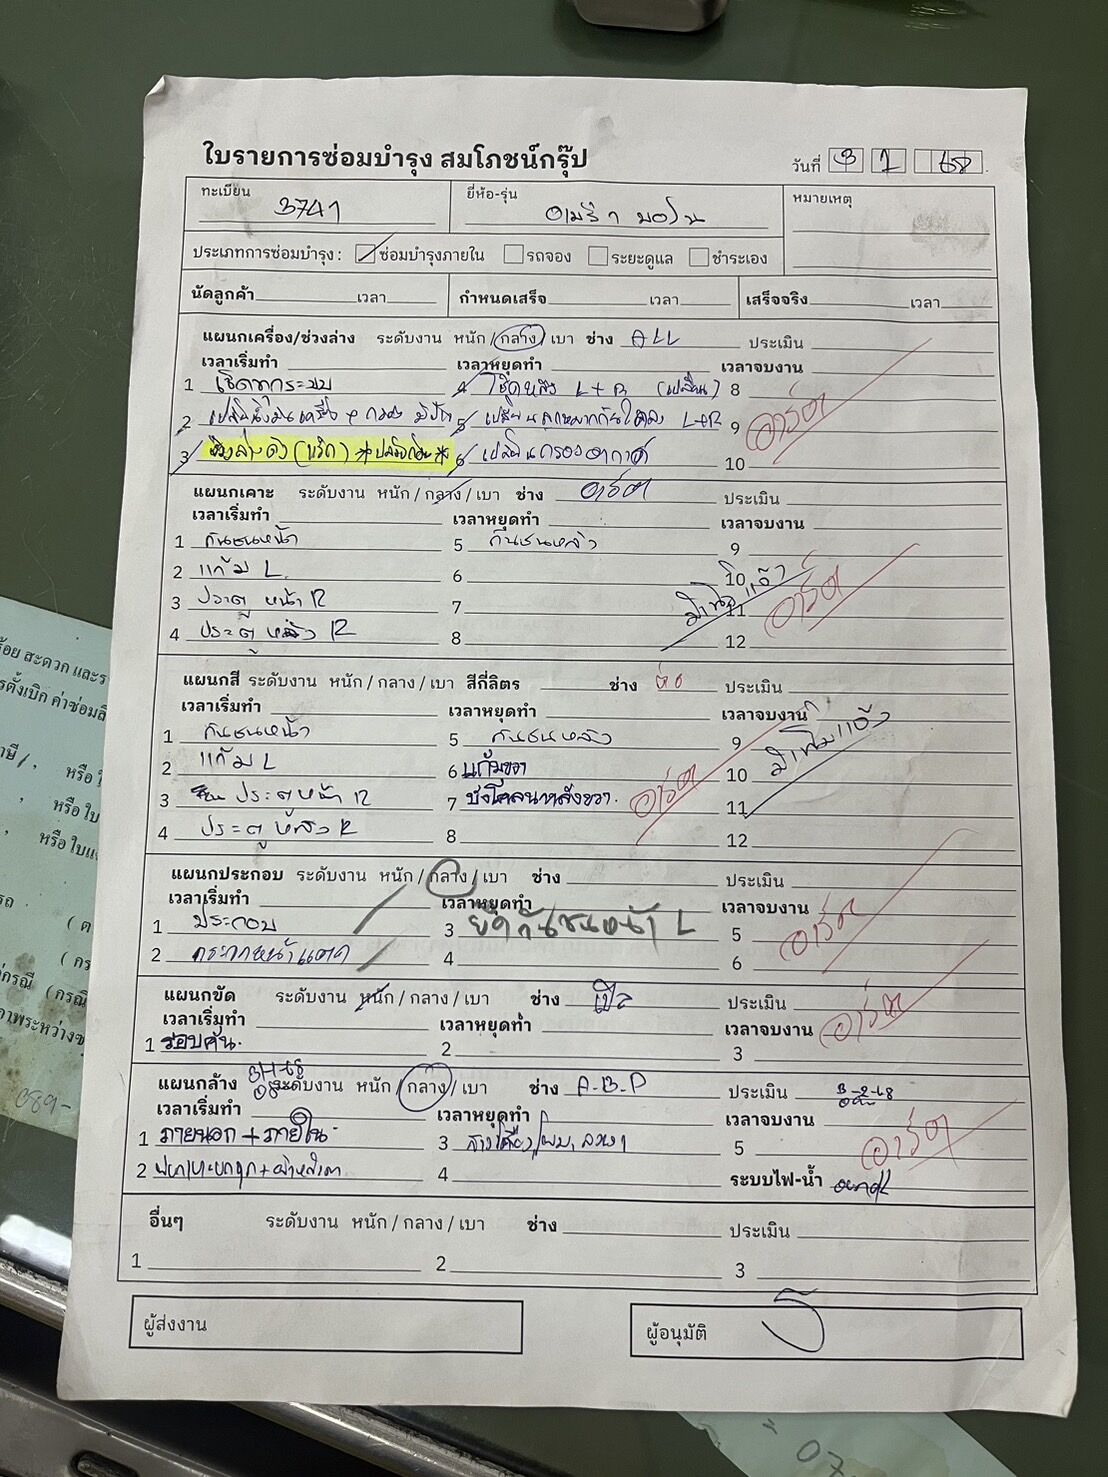 ใบรายการซ่อมบำรุง สมโภชน์กรุ๊ป
วันที่ 3 1 68
ทะเบียน 3741 ยี่ห้อ-รุ่น หมายเหตุ
ประเภทการซ่อมบำรุง : ซ่อมบำรุงภายใน รถจอง ระยะดูแล ชำระเอง
นัดลูกค้า เวลา กำหนดเสร็จ เวลา เสร็จจริง เวลา
แผนกเครื่อง/ช่วงล่าง ระดับงาน หนัก / กลาง / เบา ช่าง ALL ประเมิน
เวลาเริ่มทำ เวลาหยุดทำ เวลาจบงาน
1 4 โช๊คหลัง L+R (เปลี่ยน) 8
2 5 L+R 9 อาร์ต
3 6 เปลี่ยนกรองอากาศ 10
แผนกเคาะ ระดับงาน หนัก / กลาง / เบา ช่าง อาร์ต ประเมิน
เวลาเริ่มทำ เวลาหยุดทำ เวลาจบงาน
1 กันชนหน้า 5 กันชนหลัง 9
2 แก้ม L 6 10
3 ประตู หน้า R 7 11 อาร์ต
4 ประตู หลัง R 8 12
แผนกสี ระดับงาน หนัก / กลาง / เบา สีกี่ลิตร ช่าง ประเมิน
เวลาเริ่มทำ เวลาหยุดทำ เวลาจบงาน
1 กันชนหน้า 5 กันชนหลัง 9
2 แก้ม L 6 แก้มขวา 10
3 ประตูหน้า R 7 บังโคลนหลังขวา. อาร์ต 11
4 ประตูหลัง R 8 12
แผนกประกอบ ระดับงาน หนัก / กลาง / เบา ช่าง ประเมิน
เวลาเริ่มทำ เวลาหยุดทำ เวลาจบงาน
1 ประกอบ 3 ยึดกันชนหน้า L 5 อาร์ต
2 กระจกหน้าแตก 4 6
แผนกขัด ระดับงาน หนัก / กลาง / เบา ช่าง ประเมิน
เวลาเริ่มทำ เวลาหยุดทำ เวลาจบงาน อาร์ต
1 รอบคัน. 2 3
แผนกล้าง ระดับงาน หนัก / กลาง / เบา ช่าง A-B-P ประเมิน 3-2-68
เวลาเริ่มทำ เวลาหยุดทำ เวลาจบงาน
1 ภายนอก + ภายใน 3 5 อาร์ต
2 4 ระบบไฟ-น้ำ
อื่นๆ ระดับงาน หนัก / กลาง / เบา ช่าง ประเมิน
1 2 3
ผู้ส่งงาน ผู้อนุมัติ